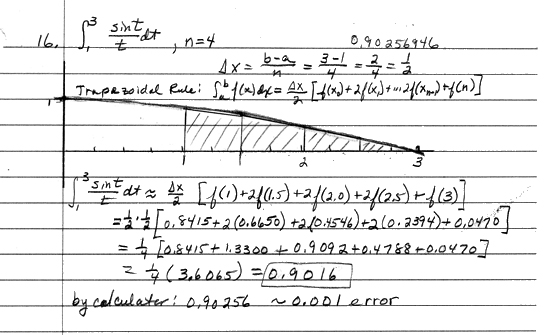 16. ∫₁³ sin t / t dt , n=4 0.90256946
Δx = b-a/n = 3-1/4 = 2/4 = 1/2
Trapezoidal Rule: ∫ₐᵇ f(x)dx = Δx/2 [f(x₀)+2f(x₁)+...2f(xₙ₋₁)+f(n)]
1
1 2 3
∫₁³ sin t / t dt ≈ Δx/2 [f(1)+2f(1.5)+2f(2.0)+2f(2.5)+f(3)]
= 1/2 · 1/2 [0.8415+2(0.6650)+2(0.4546)+2(0.2394)+0.0470]
= 1/4 [0.8415+1.3300+0.9092+0.4788+0.0470]
= 1/4 (3.6065) = 0.9016
by calculator: 0.90256 ~0.001 error